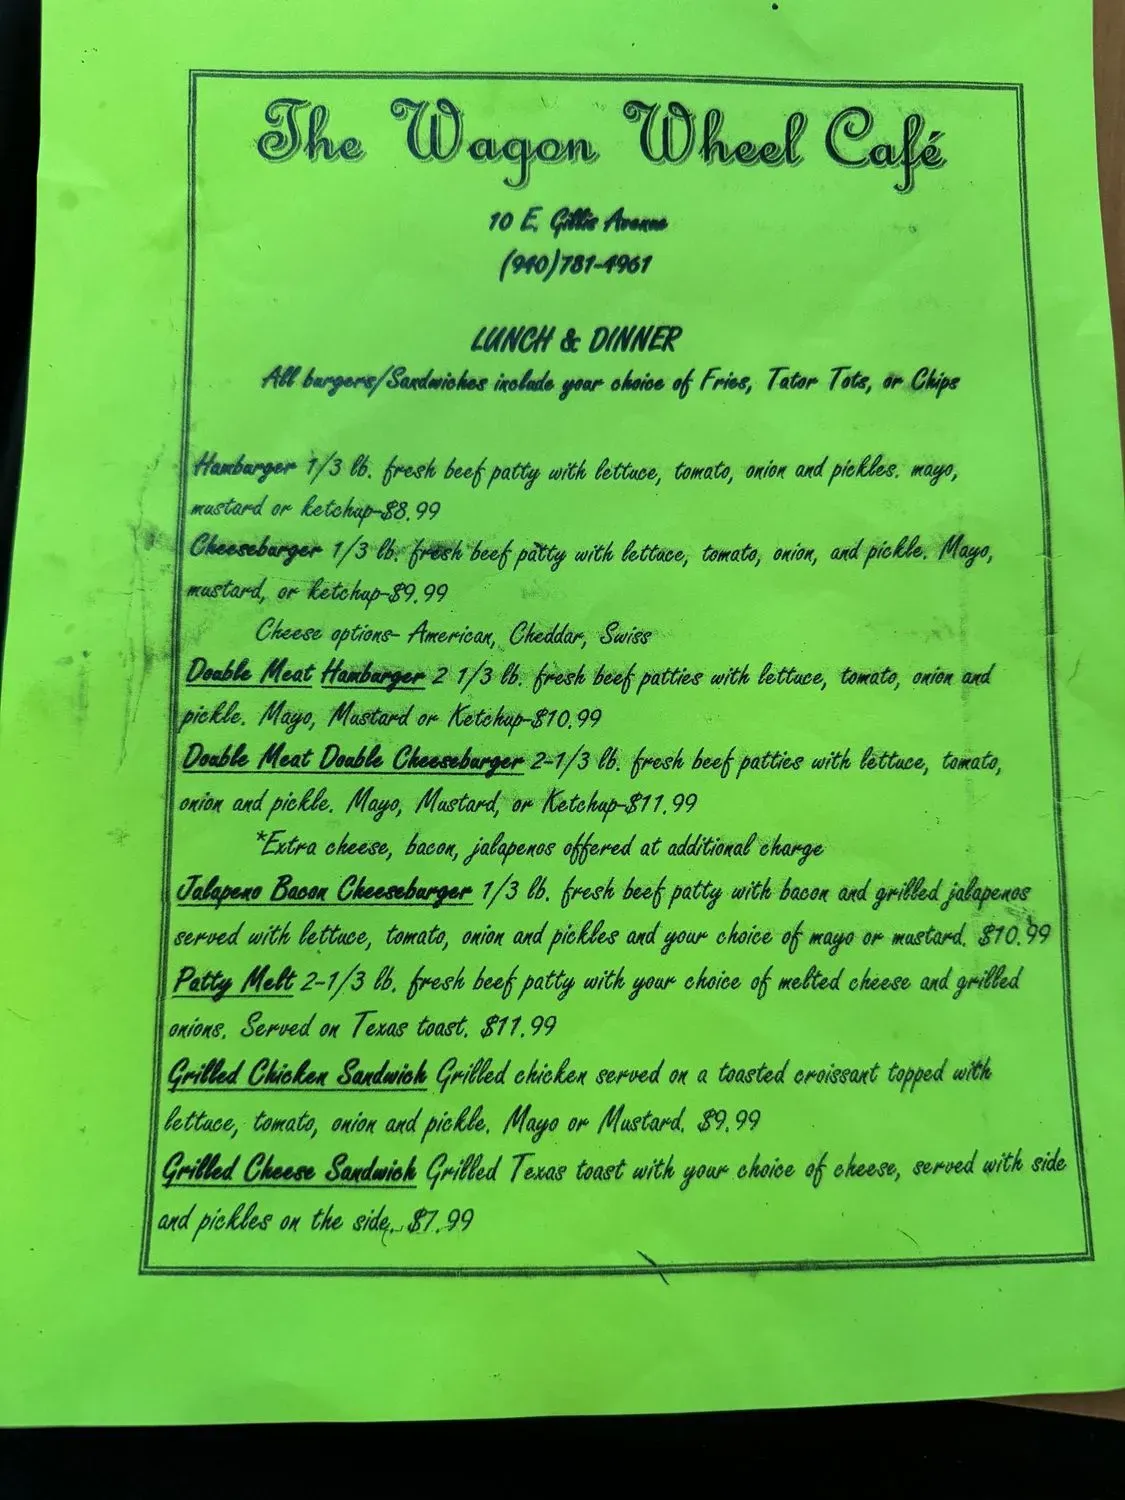 The Wagon Wheel Café
10 E. Gillis Avenue
(940)781-4961
LUNCH & DINNER
All burgers/Sandwiches include your choice of Fries, Tator Tots, or Chips
Hamburger 1/3 lb. fresh beef patty with lettuce, tomato, onion and pickles. mayo,
mustard or ketchup-$8.99
Cheeseburger 1/3 lb. fresh beef patty with lettuce, tomato, onion, and pickle. Mayo,
mustard, or ketchup-$9.99
Cheese options- American, Cheddar, Swiss
Double Meat Hamburger 2 1/3 lb. fresh beef patties with lettuce, tomato, onion and
pickle. Mayo, Mustard or Ketchup-$10.99
Double Meat Double Cheeseburger 2-1/3 lb. fresh beef patties with lettuce, tomato,
onion and pickle. Mayo, Mustard, or Ketchup-$11.99
*Extra cheese, bacon, jalapenos offered at additional charge
Jalapeno Bacon Cheeseburger 1/3 lb. fresh beef patty with bacon and grilled jalapenos
served with lettuce, tomato, onion and pickles and your choice of mayo or mustard. $10.99
Patty Melt 2-1/3 lb. fresh beef patty with your choice of melted cheese and grilled
onions. Served on Texas toast. $11.99
Grilled Chicken Sandwich Grilled chicken served on a toasted croissant topped with
lettuce, tomato, onion and pickle. Mayo or Mustard. $9.99
Grilled Cheese Sandwich Grilled Texas toast with your choice of cheese, served with side
and pickles on the side. $7.99